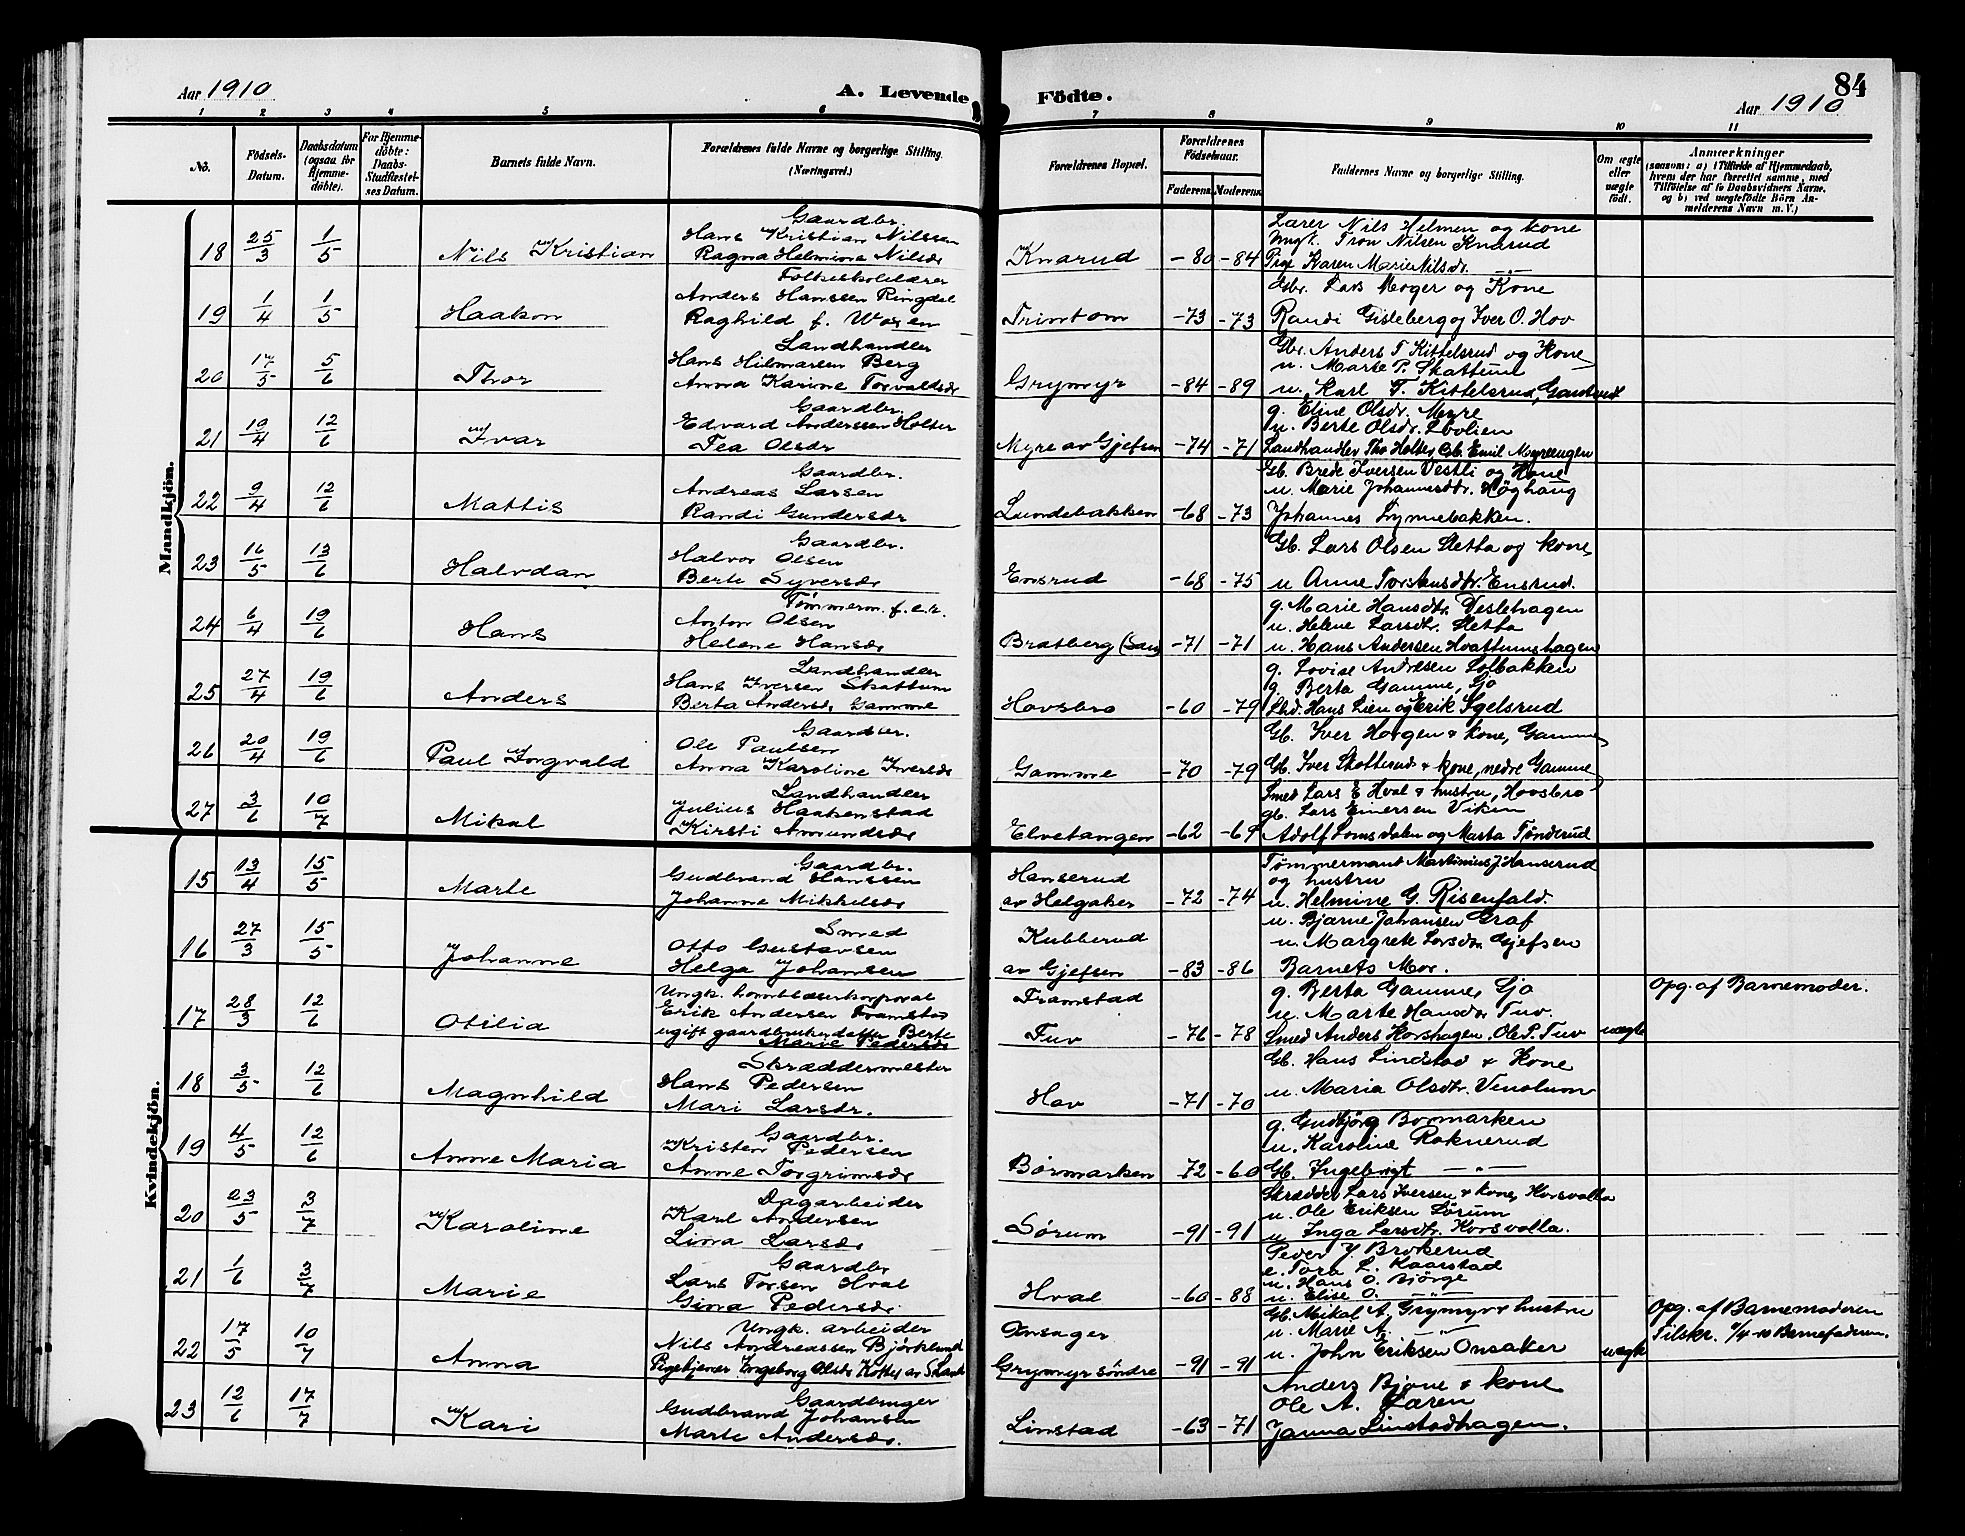 84
Aar 1910
A. Levende
Födte.
Aar 1910
1 2 3 4 5 6 7 8 9 10 11
No.
Födsels-Datum.
Daabsdatum (ogsaa för Hjemmedöbte).
For Hjemmedöbte: Daabs-Stadfæstelses Datum.
Barnets fulde Navn.
Forældrenes fulde Navne og borgerlige Stilling.
(Næringsvei.)
Forældrenes Bopæl.
Forældrenes Födselsaar.
Faderens.
Moderens.
Faddernes Navne og borgerlige Stilling.
Om ægte eller uægte födt.
Anmærkninger
(saasom: a) i Tilfælde af Hjemmedaab,
hvem der har forrettet samme, med
Tilföielse af to Daabsvidners Navne.
og b) ved uægtefödte Börn Anmelderens Navn m. V.)
Mandkjön.
18 25/3 1/5 Nils Kristian
Gaardbr.
Hans Kristian Nilssen
Ragna Helmine Nilsdr
Knarud -80 -84
Lærer Nils Helmen og kone
Ungk. Tron Nilsen Knarud
Pige Karen Marie Nilsdr. —"—
19 1/4 1/5 Haakon
Folkeskolelærer
Anders Hanssen Ringdal
Raghild f. Woxen
Trintom -73 -73
Gbr. Lars Moger og Kone
Randi Gisleberg og Iver O. Hov
20 17/5 5/6 Thor
Landhandler
Hans Hilmarsen Berg
Anna Karine Torvaldsdr
Grymyr -84 -89
Gbr. Anders T. Kittelsrud og Kone
u. Marte P. Skattum
u. Karl T. Kittelsrud,
21 19/4 12/6 Ivar
Gaardbr.
Edvard Anderssen Holter
Tea Olsdr
Myre av Gjefsen -74 -71
g. Eline Olsdr. Myre
u. Berte Olsdr. Lovlien
Landhandler Th. Holter, Gb. Emil Myreengen
22 9/4 12/6 Mattis
Gaardbr.
Andreas Larsen
Randi Gundersdr
Lundebakken -68 -73
Gb. Brede Iversen Vestli og Kone
u. Marie Johannesdtr. Høghaug
Johannes Lynnebakken.
23 16/5 13/6 Halvdan
Gaardbr.
Halvor Olsen
Berte Syversdr
Ensrud -68 -75
Gb. Lars Olsen Sletta og kone
u Anne Torstensdtr. Ensrud.
24 6/4 19/6 Hans
Tømmerm. f. e. r.
Anton Olsen
Helene Hansdr
Bratberg -71 -71
g. Marie Hansdtr. Veslehagen
u. Helene Larsdtr. Sletta
u. Hans Andersen Hvattumshagen
25 27/4 19/6 Anders
Landhandler
Hans Iversen Skattum
Berta Andersdr Gamme
Hovsbro -60 -79
g. Lovise Andresen Solbakken
g. Berta Gamme, Gjo
Lhd. Hans Lien og Erik Igelsrud
26 20/4 19/6 Paul Ingvald
Gaardbr.
Ole Paulsen
Anna Karoline Iversdr
Gamme -70 -79
Gb. Iver Horgen & kone, Gamme
Gb. Iver Skatterud & kone, nedre Gamme
27 3/6 10/7 Mikal
Landhandler
Julius Haakenstad
Kirsti Amundsdr
Elvetangen -62 -69
Smed Lars E Hval & hustru, Hovsbro
gb. Lars Einersen Viken
Adolf Lomsdalen og Marta Tønderud
Kvindekjön.
15 13/4 15/5 Marte
Gaardbr.
Gudbrand Hanssen
Johanne Mikkelsdr
Hanserud
av Helgaker -72 -74
Tømmermant Martinius J Hanserud
og hustru
u. Helmine G. Risenfald.
16 27/3 15/5 Johanne
Smed
Otto Gustavsen
Helga Johansen
Kubberud
av Gjefsen -83 -86
u. Bjarne Johansen Graf
u. Margrete Larsdr. Gjefsen
Barnets Mor.
17 28/3 12/6 Otilia
Ungk. hornblæserkorporal
Erik Andersen Framstad
ugift gaardbrukerdatter Berte
Marie Pedersdr
Framstad
Tuv -76 -78
g. Berta Gamme, Gjo
u. Marte Hansdtr Tuv.
Smed Anders Korshagen, Ole P. Tuv
uægte
Opg. af Barnemoder.
18 3/5 12/6 Magnhild
Skræddermester
Hans Pedersen
Mari Larsdr.
Hov -71 -70
Gb. Hans Lindstad & Kone
u. Maria Olsdtr. Vinolum
19 4/5 12/6 Anne Maria
Gaardbr.
Kristen Pedersen
Anne Torgrimsdr
Børmarken 72 -60
g. Gudbjörg Bormarken
u. Karoline Roknerud
Gb. Ingebrigt —"—
20 23/5 3/7 Karoline
Dagarbeider
Karl Andersen
Lina Larsdr
Sørum -91 -91
Skrædder Lars Iversen & kone, Korsvolla
u. Ole Eriksen Sørum
u Inga Larsdtr. Korsvolla.
21 1/6 3/7 Marie
Gaardbr
Lars Torsen Hval
Gina Pedersdr.
Hval -60 -88
Peder J. Brokerud
e. Tora L. Kaarstad
u. Hans O. Bjørge
u. Elise O. —"—
22 17/5 10/7 Anna
Ungk. arbeider
Nils Andreassen Bjørklund
Pigetjener Ingeborg Olsdr Kotter av
Onsager
Grymyr söndre -91 -91
Gb. Mikal A. Grymyr & hustru
u. Marie A. —"—
u. John Eriksen Onsaker
uægte
Opg. af Barnemoderen
Tilskr. 9/4-10 Barnefaderen.
23 12/6 17/7 Kari
Gaardbruger
Gudbrand Johansen
Marte Andersdr.
Linstad -63 -71
Anders Bjone & kone
Ole A. Laren
Janna Linstadhagen.